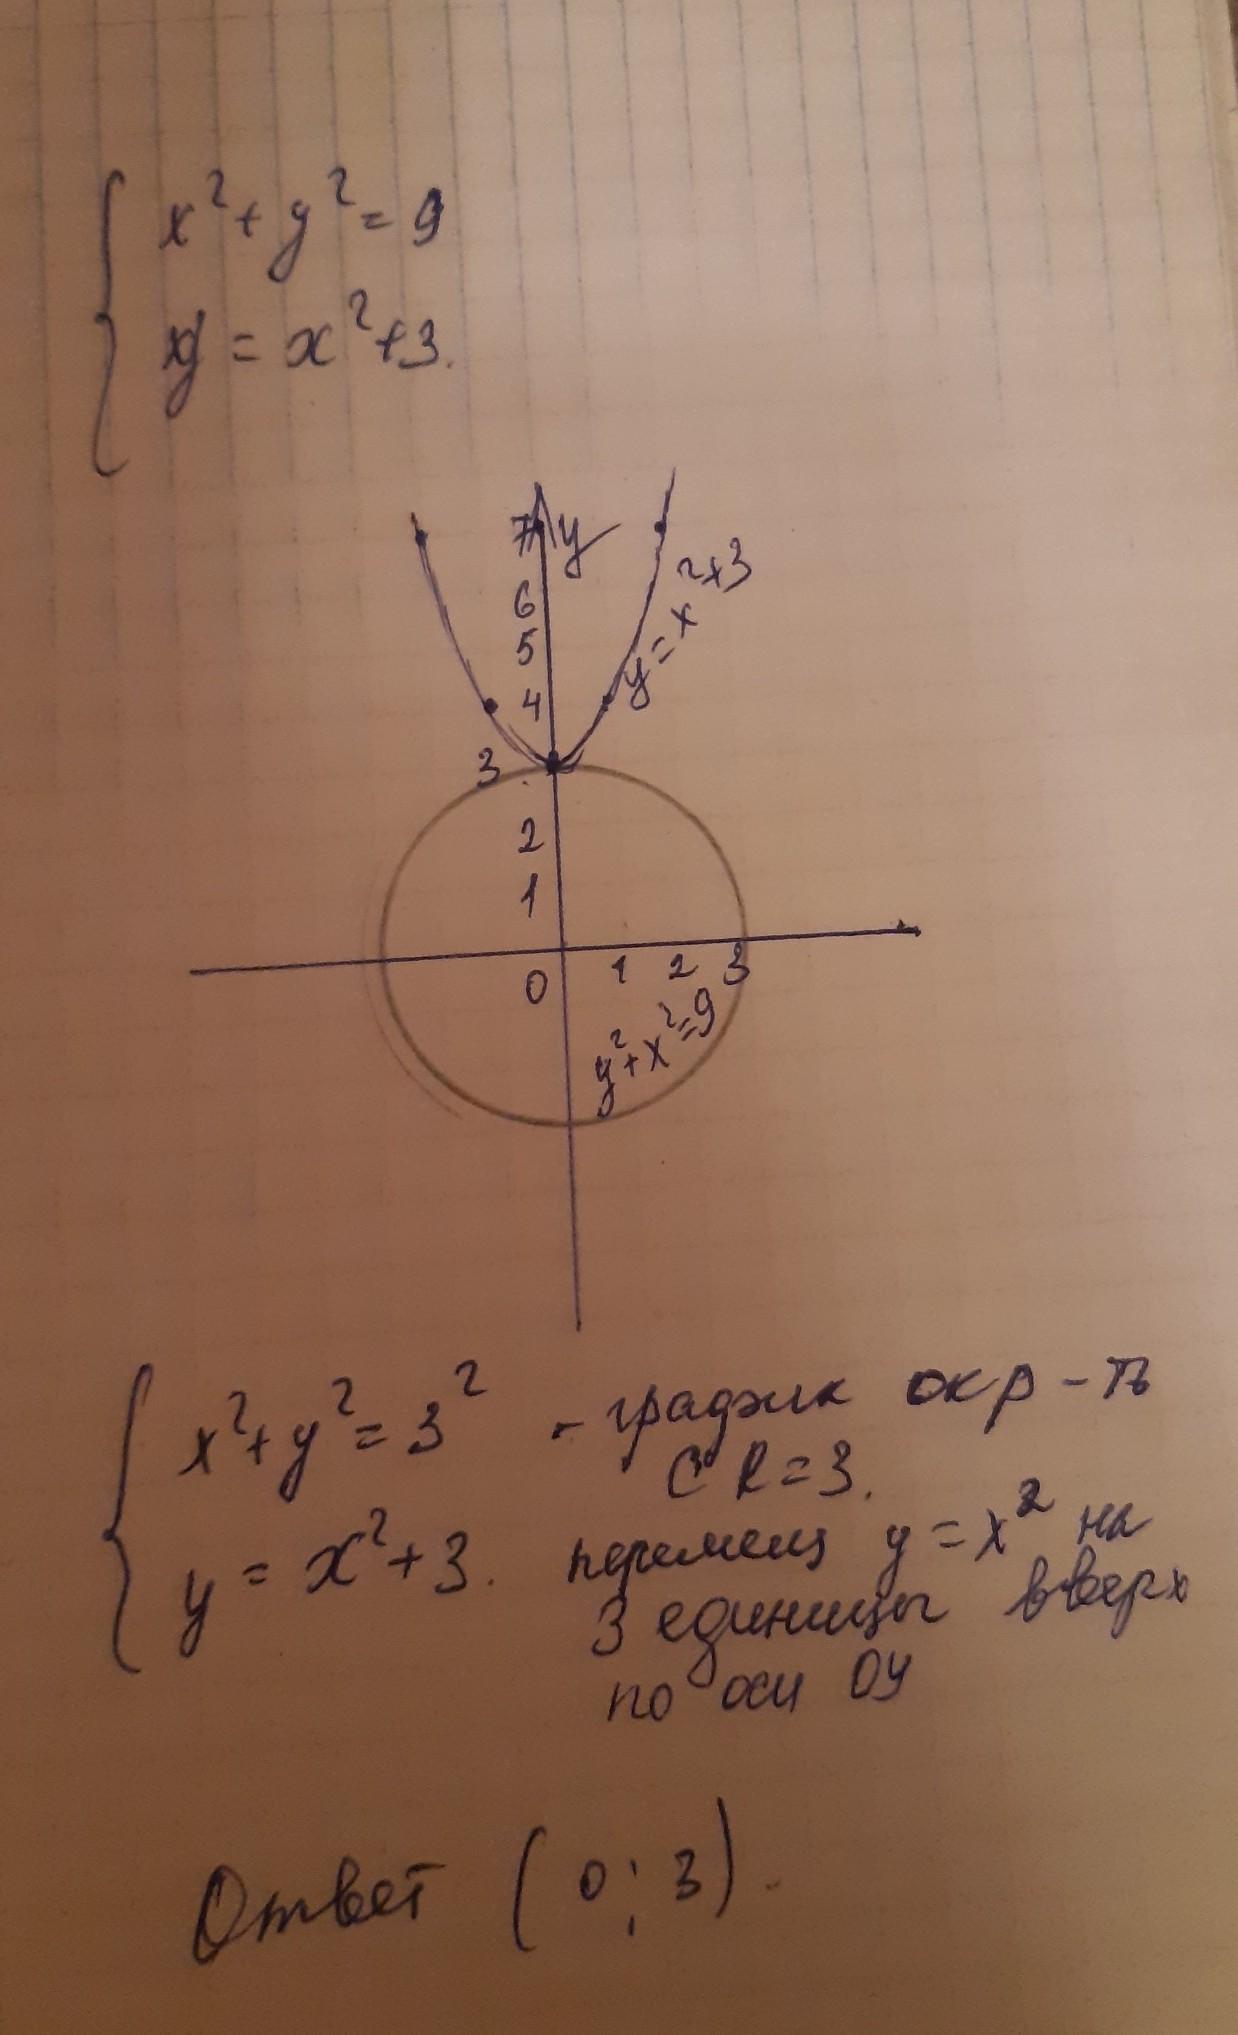 x² + y² = 9
y = x² + 3.
7 y
6
5
4
y = x² + 3
3
2
1
0 1 2 3
y² + x² = 9
x² + y² = 3² - график окр-ть
С R = 3.
y = x² + 3. перемещ y = x² на
3 единицы вверх
по оси ОУ
Ответ (0; 3).